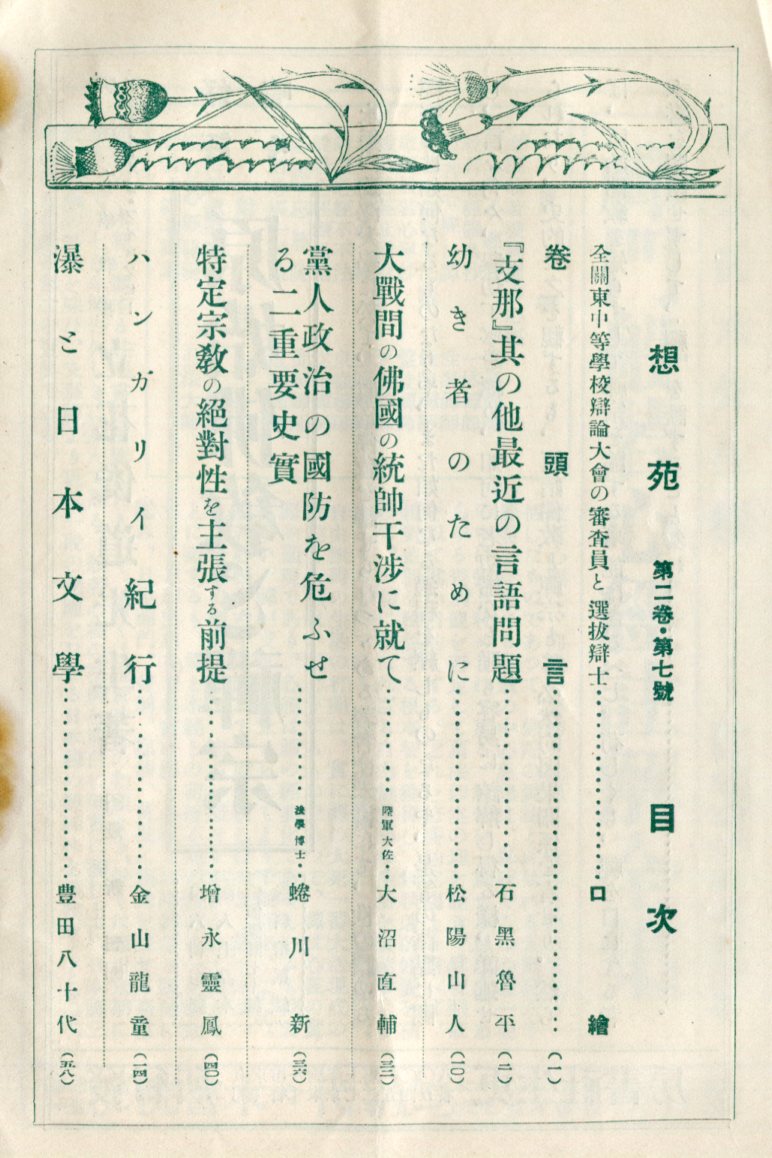 想苑 第二卷・第七號 目次
全關東中等學校辯論大會の審査員と選拔辯士………口繪
卷頭言………(一)
『支那』其の他最近の言語問題………石黑魯平(二)
幼き者のために………松陽山人(一〇)
大戰間の佛國の統帥干涉に就て………陸軍大佐…大沼直輔(三二)
黨人政治の國防を危ふせ
る二重要史實………法學博士…蜷川新(三六)
特定宗敎の絕對性を主張する前提………增永靈鳳(四〇)
ハンガリイ紀行………金山龍童(一四)
瀑と日本文學………豊田八十代(五八)